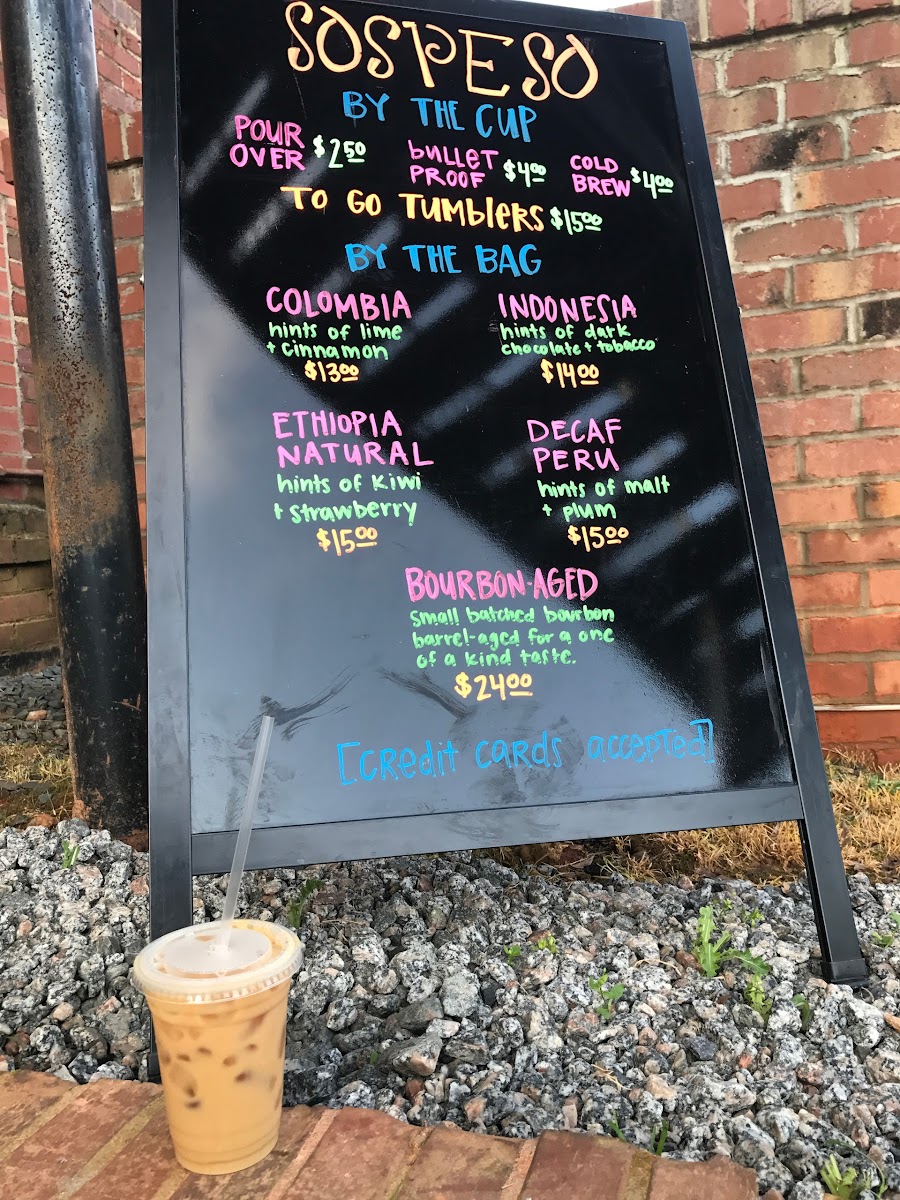 SOSPESO
BY THE CUP
POUR OVER $2.50
bULLET PROOF $4.00
COLD BREW $4.00
TO GO TUMBLERS $15.00
BY THE BAG
COLOMBIA
hints of lime
+ cinnamon
$13.00
INDONESIA
hints of dark
chocolate + tobacco
$14.00
ETHIOPIA
NATURAL
hints of kiwi
+ strawberry
$15.00
DECAF
PERU
hints of malt
+ plum
$15.00
BOURBON-AGED
small batched bourbon
barrel-aged for a one
of a kind taste.
$24.00
[credit cards accepted]